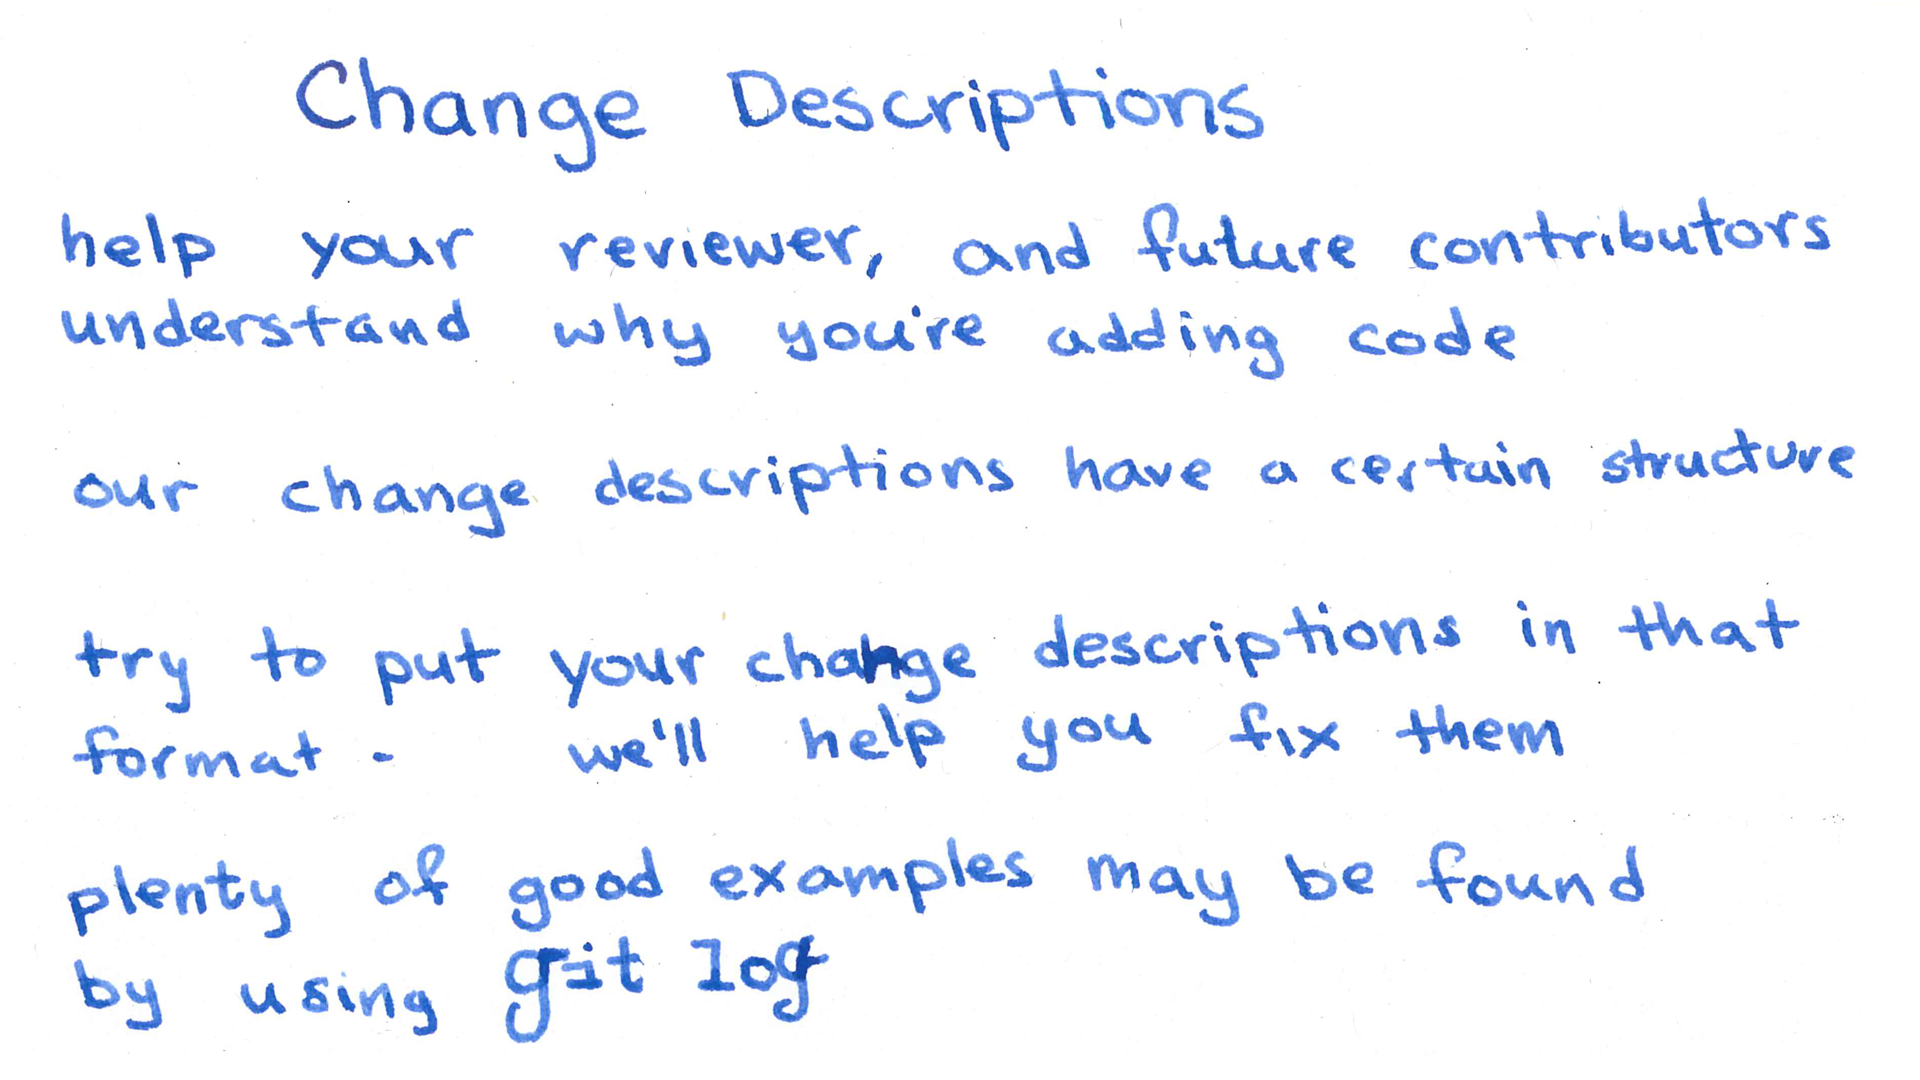 Change Descriptions
help your reviewer, and future contributors
understand why you're adding code
our change descriptions have a certain structure
try to put your change descriptions in that
format - we'll help you fix them
plenty of good examples may be found
by using git log